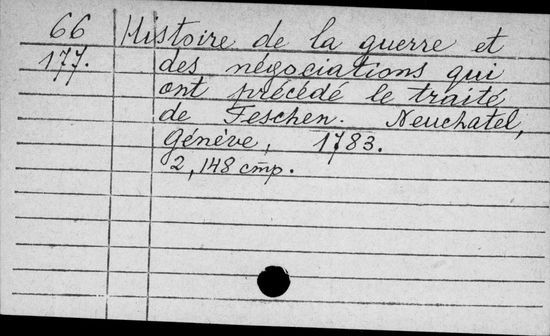 66 Histoire de la guerre et
177. des négociations qui
ont précédé le traité
de Feschen. Neuchatel,
Genève, 1783.
2, 148 стр.